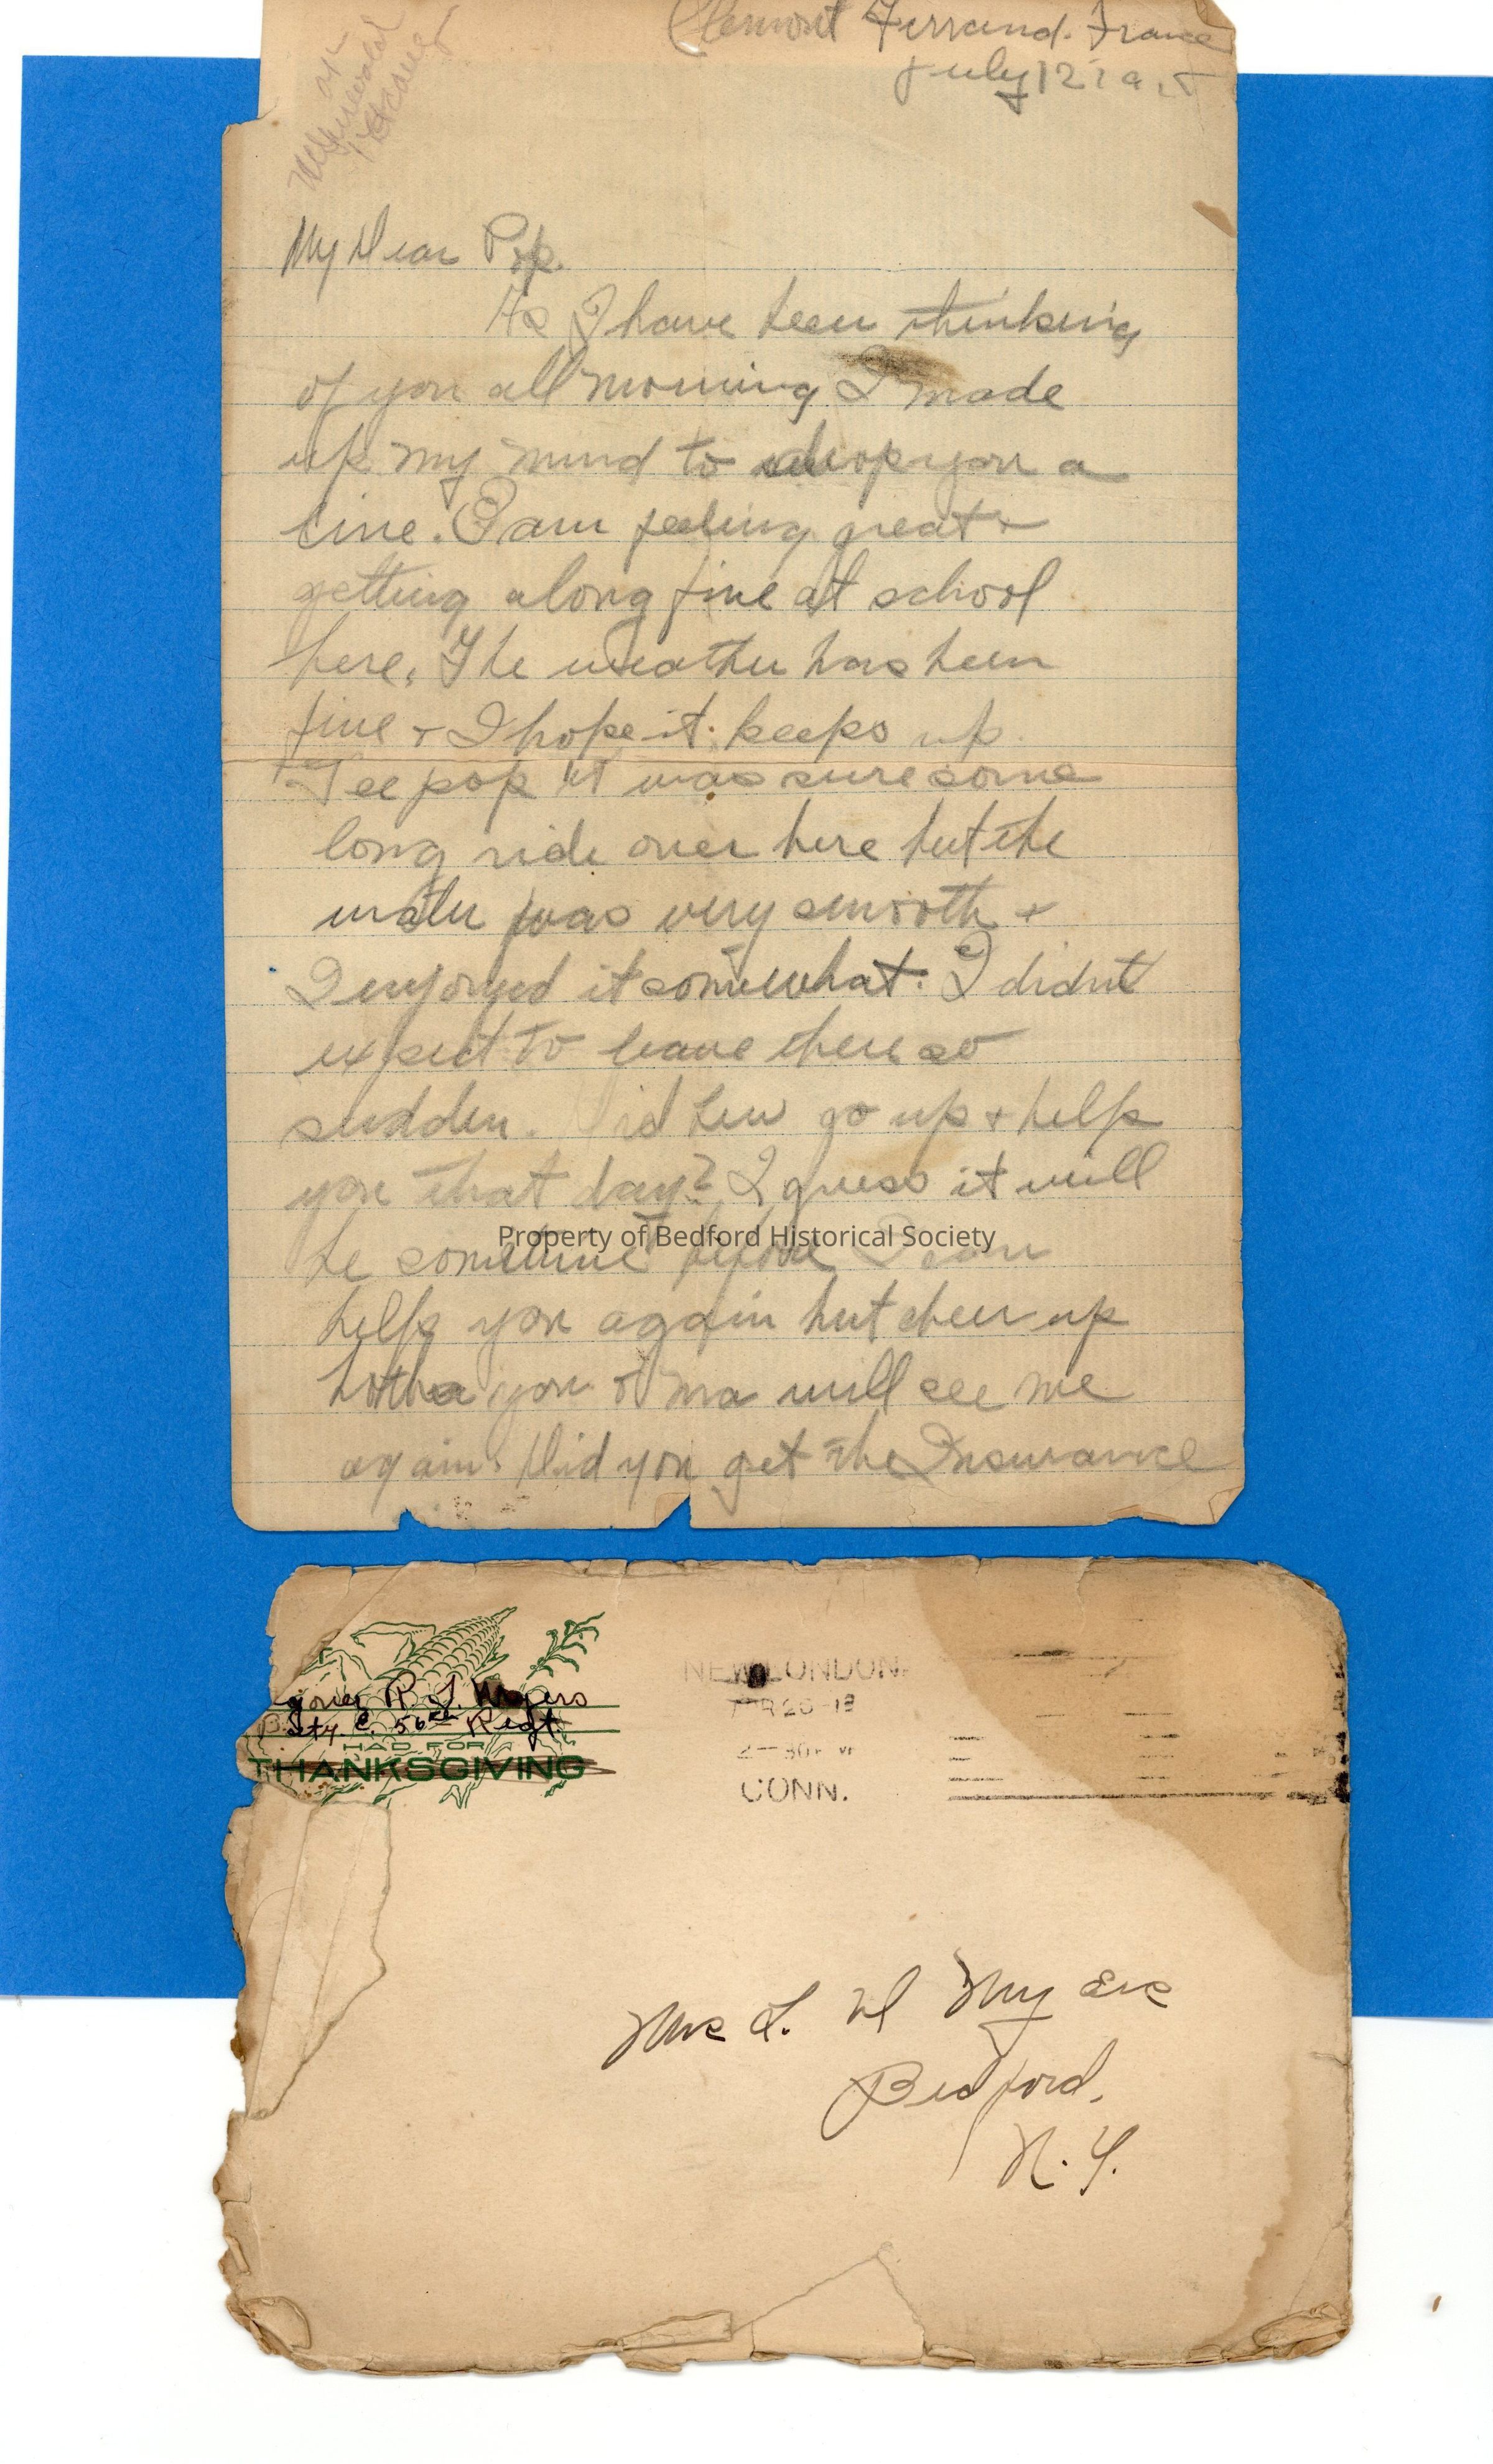 Clermont Ferrand. France
July 12
My Dear Pop.
As I have been thinking
of you all morning I made
up my mind to drop you a
line. I am feeling great +
getting along fine at school
here. The weather has been
fine + I hope it keeps up.
Gee pop it was sure some
long ride over here but the
water was very smooth +
I enjoyed it somewhat. I didnt
expect to leave there so
sudden. Did Lew go up + help
you that day? I guess it will
be sometime before I can
help you again but cheer up
both you + ma will see me
again. Did you get the Insurance
Property of Bedford Historical Society
R. L. Myers
Bty. C. 56th Regt
HAD FOR
THANKSGIVING
NEW LONDON.
2-30 P M
CONN.
Mrs L. D Myers
Bedford.
N. Y.